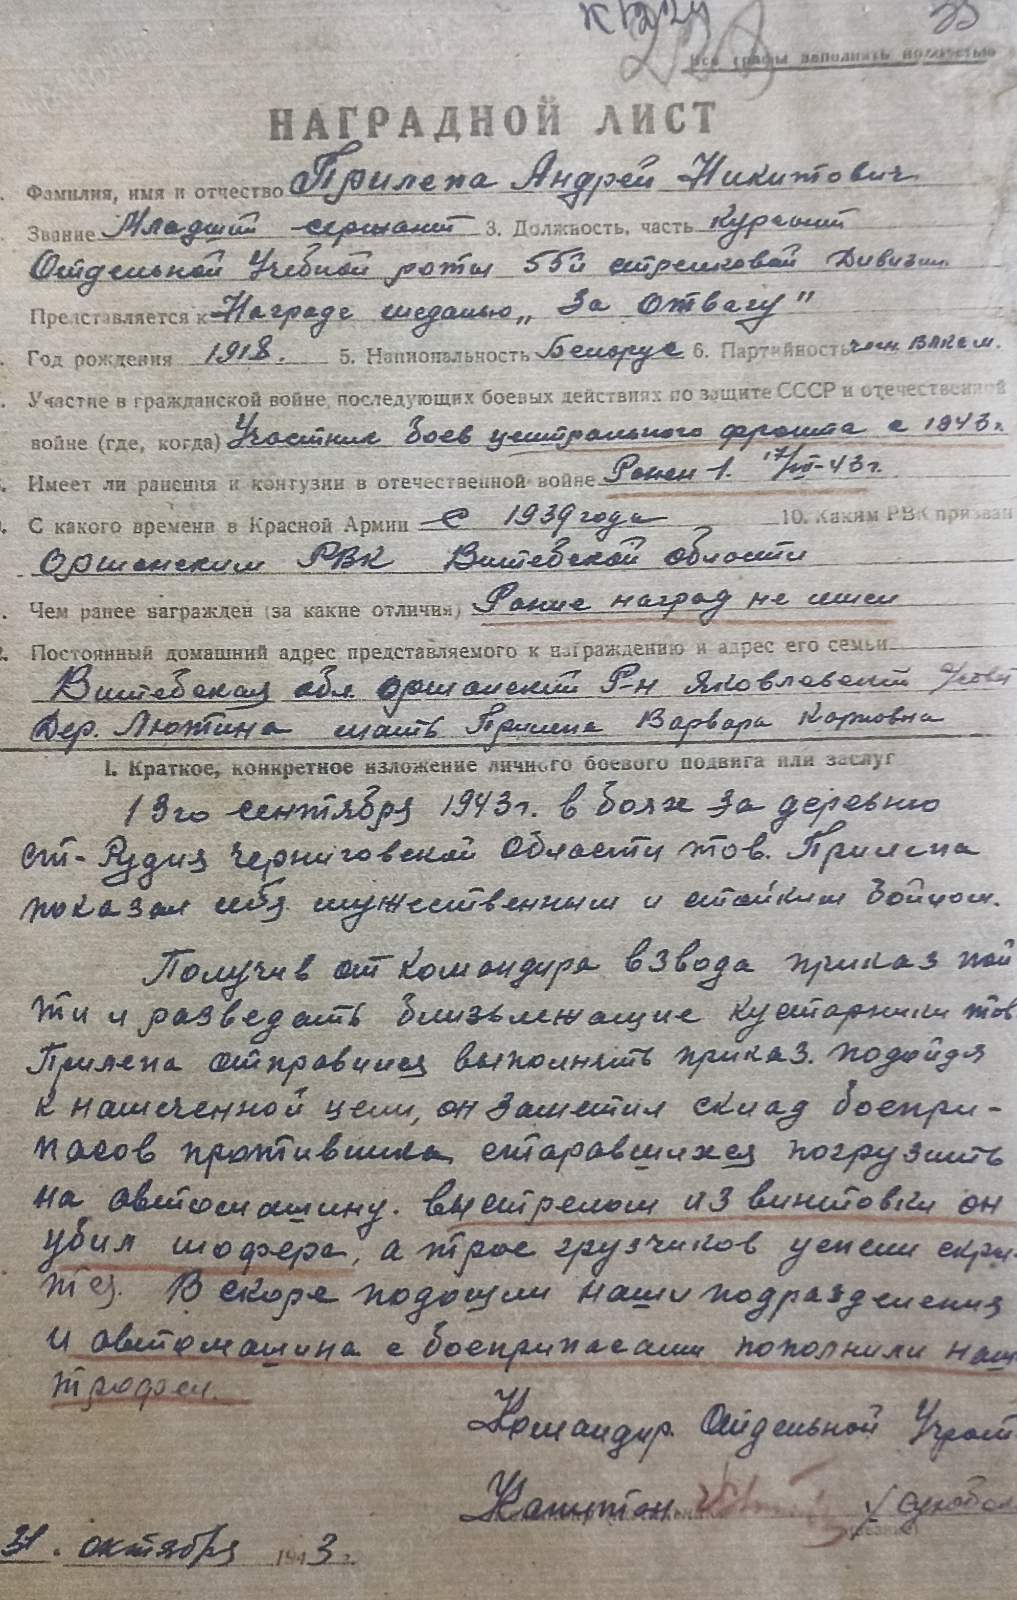 Все графы заполнять полностью
НАГРАДНОЙ ЛИСТ
Фамилия, имя и отчество Прилепа Андрей Никитович
Звание Младший сержант 3. Должность, часть Курсант
Отдельной Учебной роты 55й стрелковой Дивизии
Представляется к Награде медалью „За Отвагу"
Год рождения 1918. 5. Национальность Белорус 6. Партийность член ВЛКСМ.
Участие в гражданской войне, последующих боевых действиях по защите СССР и отечественной
войне (где, когда) Участник боев центрального фронта с 1943 г.
Имеет ли ранения и контузии в отечественной войне Ранен 1. 17/VII-43 г.
С какого времени в Красной Армии с 1939 года 10. Каким РВК призван
Оршанским РВК Витебской области
Чем ранее награжден (за какие отличия) Ранее наград не имел
Постоянный домашний адрес представляемого к награждению и адрес его семьи
Витебская обл. Оршанский Р-н Яковлевский
Дер. Лютина мать Прилепа Варвара Карповна
I. Краткое, конкретное изложение личного боевого подвига или заслуг
13го сентября 1943 г. в боях за деревню
ст-Рудня Черниговской Области тов. Прилепа
показал себя мужественным и стойким бойцом.
Получив от командира взвода приказ пой
ти и разведать близьлежащие кустарники тов
Прилепа отправился выполнять приказ. подойдя
к намеченной цели, он заметил склад боепри-
пасов противника старавшихся погрузить
на автомашину. выстрелом из винтовки он
убил шофера, а трое грузчиков успели скры-
тся. В скоре подошли наши подразделения
и автомашина с боеприпасами пополнили наш
трофеи.
Командир Отдельной Учрот
Капитан
31. октября 1943 г.